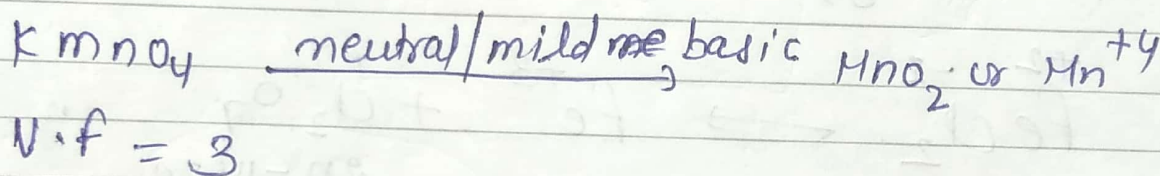 KmnO4 neutral/mild basic MnO2 or Mn+4
N.f = 3